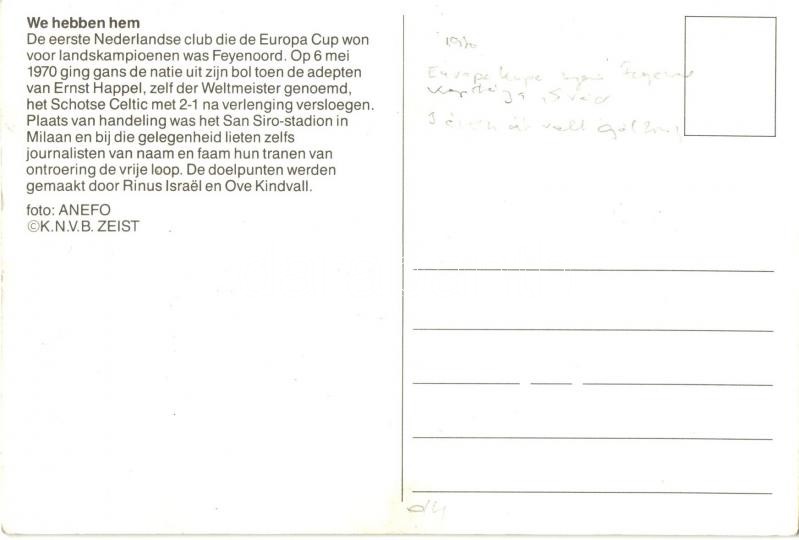 We hebben hem
De eerste Nederlandse club die de Europa Cup won
voor landskampioenen was Feyenoord. Op 6 mei
1970 ging gans de natie uit zijn bol toen de adepten
van Ernst Happel, zelf der Weltmeister genoemd,
het Schotse Celtic met 2-1 na verlenging versloegen.
Plaats van handeling was het San Siro-stadion in
Milaan en bij die gelegenheid lieten zelfs
journalisten van naam en faam hun tranen van
ontroering de vrije loop. De doelpunten werden
gemaakt door Rinus Israël en Ove Kindvall.
foto: ANEFO
©K.N.V.B. ZEIST
1970